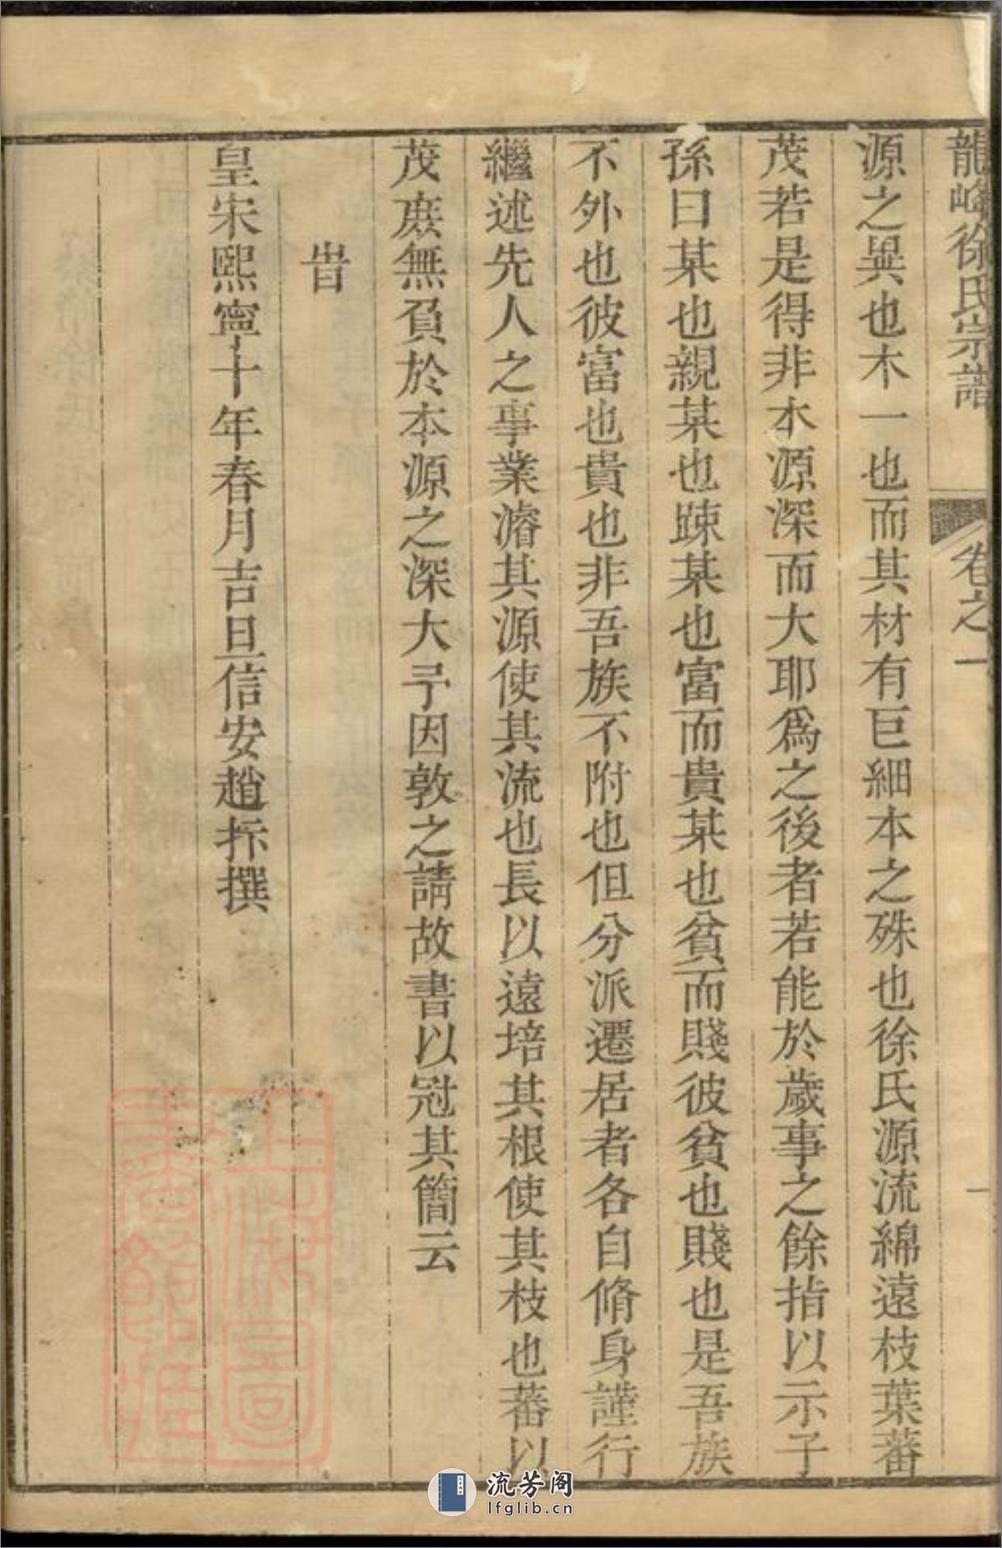 龍峰徐氏宗譜 卷之一 一
源之異也木一也而其材有巨細本之殊也徐氏源流綿遠枝葉蕃
茂若是得非本源深而大耶爲之後者若能於歲事之餘指以示子
孫曰某也親某也踈某也富而貴某也貧而賤彼貧也賤也是吾族
不外也彼富也貴也非吾族不附也但分派遷居者各自脩身謹行
繼述先人之事業濬其源使其流也長以遠培其根使其枝也蕃以
茂庶無負於本源之深大予因敦之請故書以冠其簡云
旹
皇宋熙寧十年春月吉旦信安趙抃撰
上海圖書館藏
流芳阁
lfglib.cn